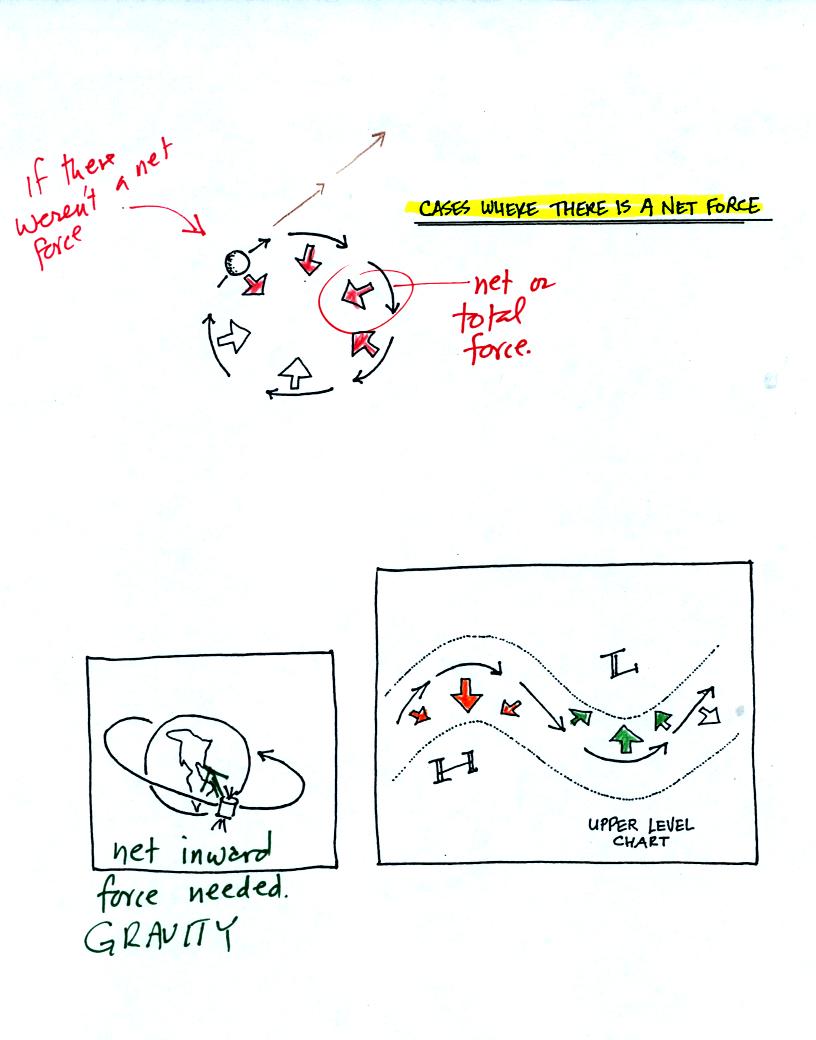 If there
weren't a net
force
CASES WHERE THERE IS A NET FORCE
net or
total
force.
L
H
UPPER LEVEL
CHART
net inward
force needed.
GRAVITY